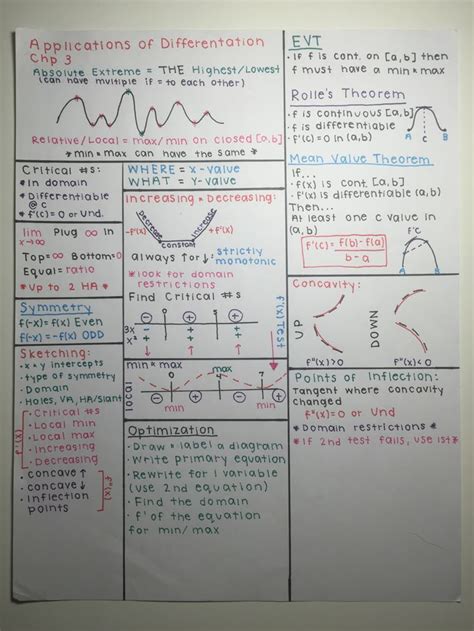 Applications of Differentation
Chp 3
Absolute Extreme = THE Highest/Lowest
(can have multiple if = to each other)
Relative/Local = max/min on closed [a,b]
* min * max can have the same *
Critical #s:
* In domain
* Differentiable
@ c
* f'(c) = 0 or Und.
lim x→∞ Plug ∞ in
Top=∞ Bottom=0
Equal = ratio
* Up to 2 HA *
Symmetry
f(-x) = f(x) Even
f(-x) = -f(x) ODD
Sketching:
· x * y intercepts
· type of symmetry
· Domain
· Holes, VA, HA/Slant
· Critical #s
· Local min
· Local max
· Increasing
· Decreasing
· concave ↑
· concave ↓
· Inflection
points
WHERE = x-value
WHAT = Y-value
Increasing * Decreasing:
decrease
increase
-f'(x)
+f'(x)
constant
always for ↓: strictly
monotonic
* look for domain
restrictions *
Find Critical #s
f'(x) Test
+ - + +
0
3x
+ + +
min * max
local
max
0 4 7
min min
Optimization
· Draw * label a diagram
· Write primary equation
· Rewrite for 1 variable
(use 2nd equation)
· Find the domain
· f' of the equation
for min/max
EVT
· If f is cont. on [a,b] then
f must have a min * max
Rolle's Theorem
· f is continuous [a,b]
· f is differentiable
· f'(c) = 0 in (a,b)
A C B
Mean Value Theorem
If...
· f(x) is cont. [a,b]
· f(x) is differentiable (a,b)
Then...
At least one c value in
(a,b)
f'(c) = f(b) - f(a)
b - a
f'c
A B
Concavity:
UP
DOWN
f"(x) > 0
f"(x) < 0
Points of Inflection:
Tangent where concavity
changed
f"(x) = 0 or Und
* Domain restrictions *
* If 2nd test fails, use 1st *